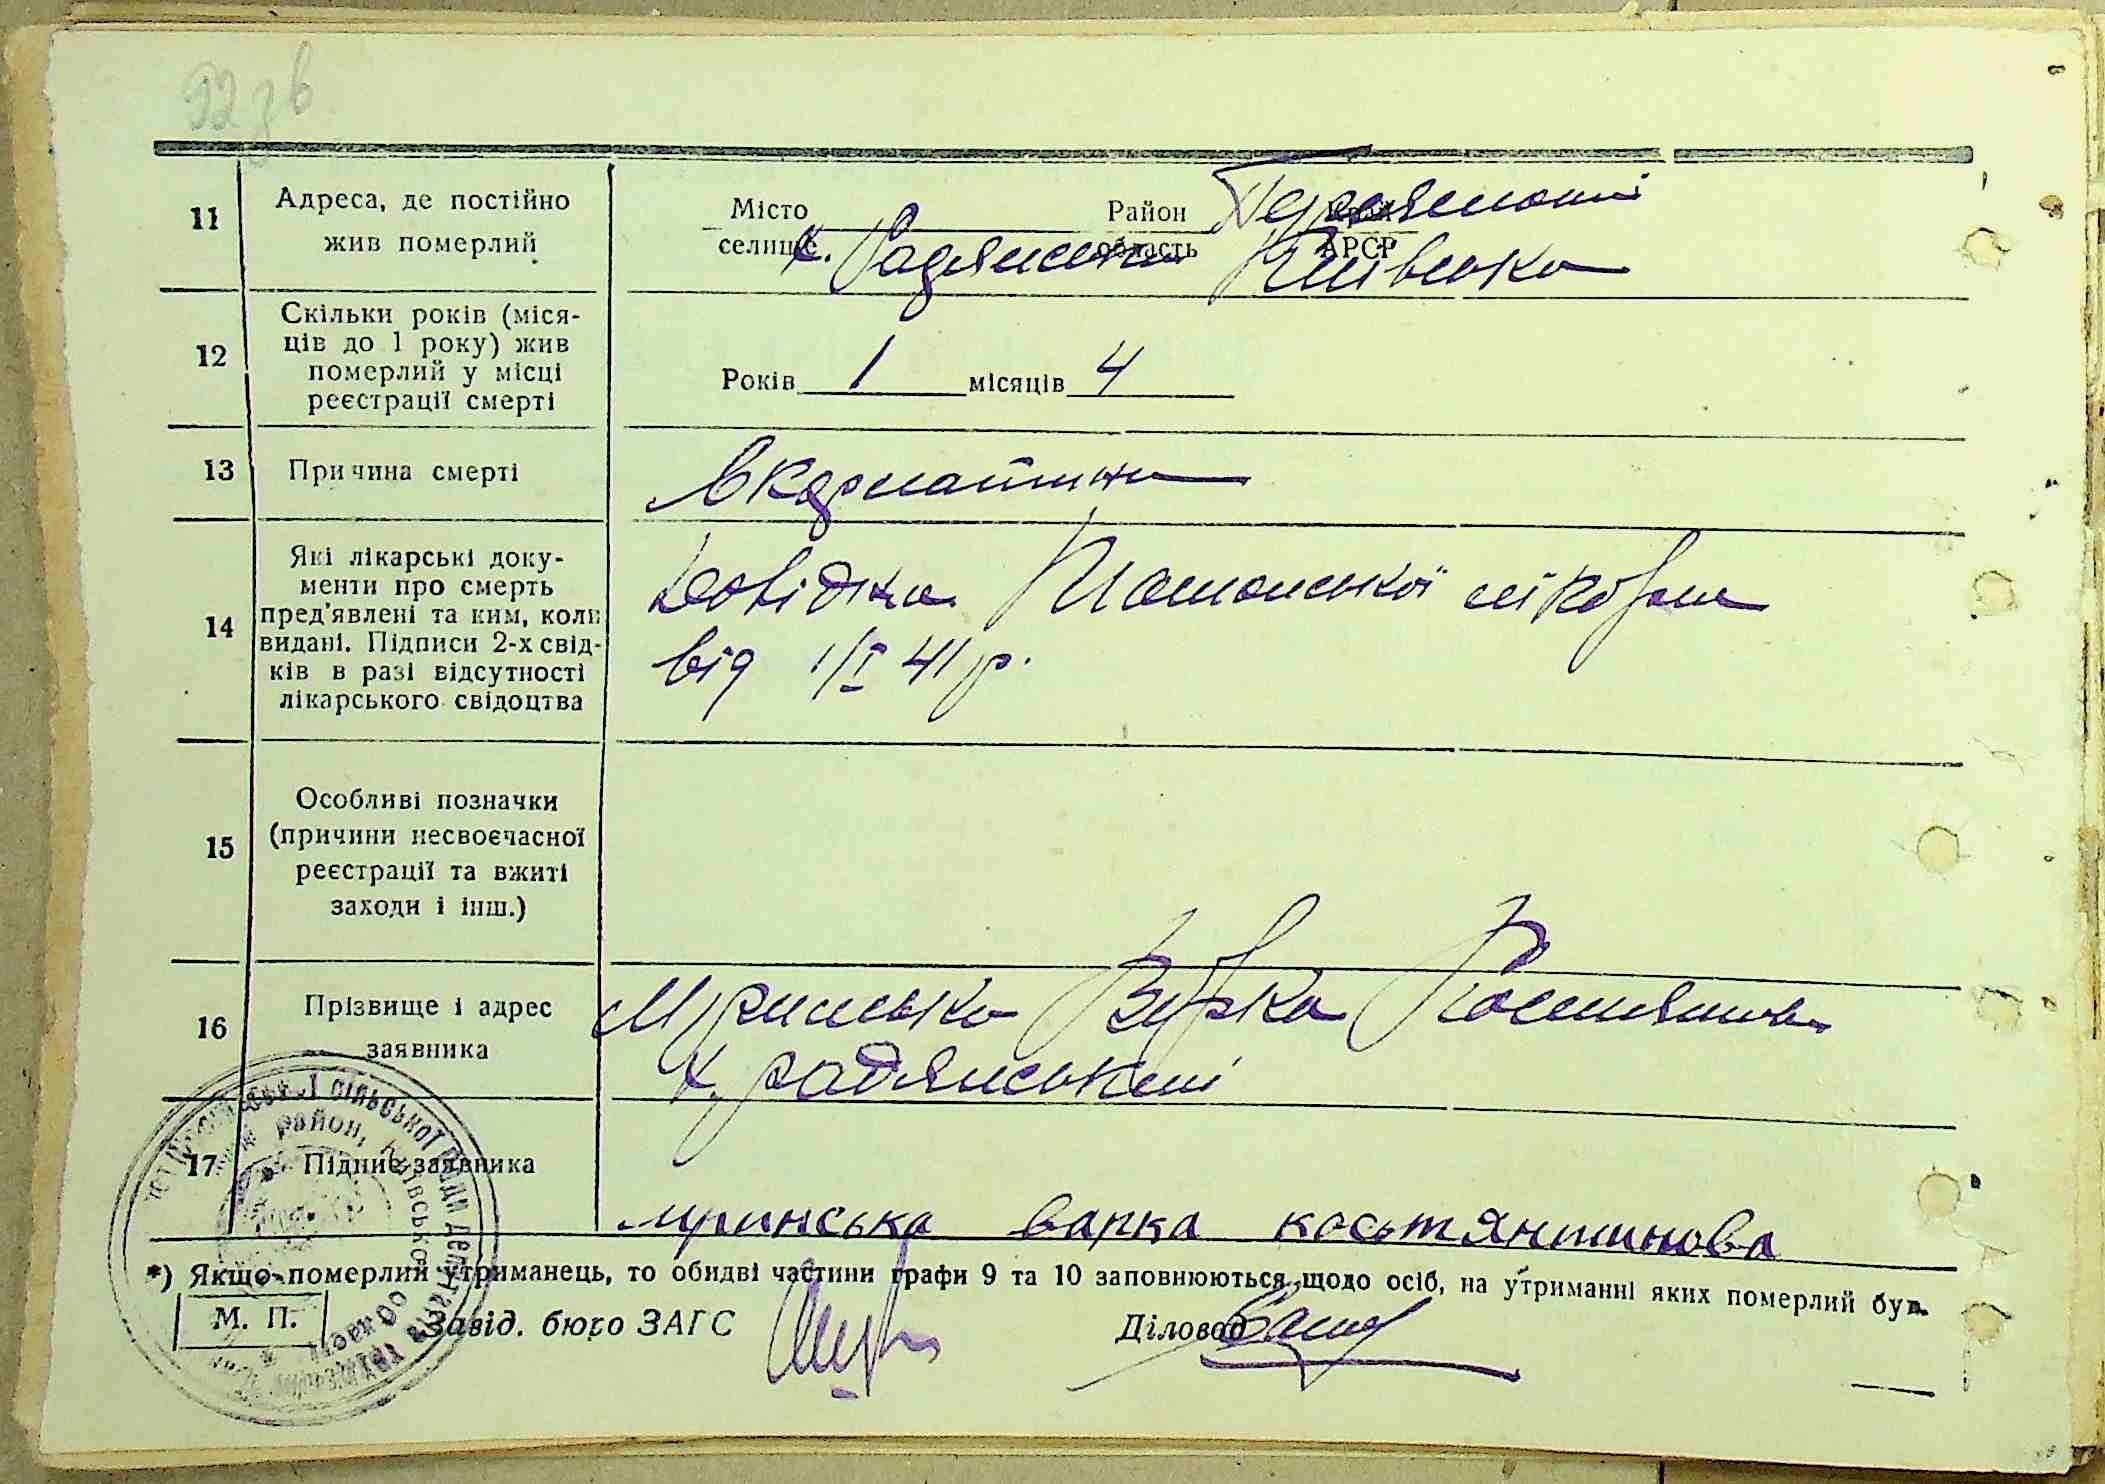 92зв
11 Адреса, де постійно жив померлий
Місто селище Район область Край АРСР
х. Радянський Київська
12 Скільки років (міся-
ців до 1 року) жив
померлий у місці
реєстрації смерті
Років 1 місяців 4
13 Причина смерті
14 Які лікарські доку-
менти про смерть
пред'явлені та ким, коли
видані. Підписи 2-х свід-
ків в разі відсутності
лікарського свідоцтва
Довідка лікарні
від 1/I 41 р.
15 Особливі позначки
(причини несвоєчасної
реєстрації та вжиті
заходи і інш.)
16 Прізвище і адрес
заявника
Мринська Варка
х. радянський
17 Підпис заявника
мринська варка костянтинова
*) Якщо померлий утриманець, то обидві частини графи 9 та 10 заповнюються щодо осіб, на утриманні яких померлий був.
М. П. Завід. бюро ЗАГС Діловод
сільської ради депутатів трудящих
район, Київської області